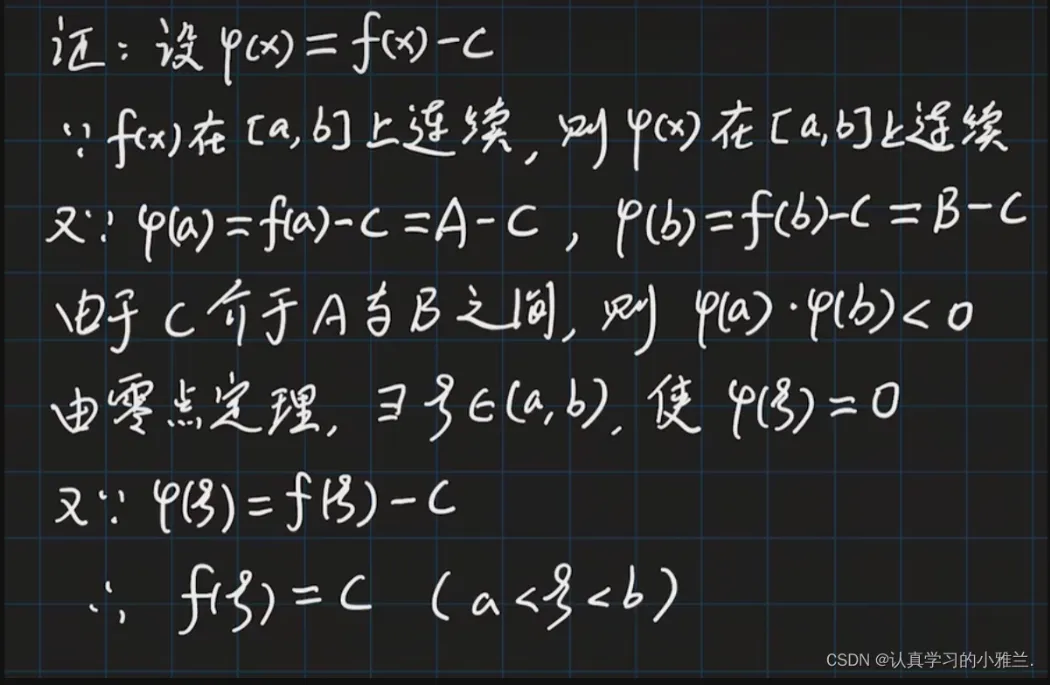 证：设 φ(x)=f(x)-C
∵ f(x)在[a,b]上连续，则φ(x)在[a,b]上连续
又∵ φ(a)=f(a)-C=A-C，φ(b)=f(b)-C=B-C
由于C介于A与B之间，则 φ(a)·φ(b)<0
由零点定理，∃ξ∈(a,b)，使 φ(ξ)=0
又∵ φ(ξ)=f(ξ)-C
∴ f(ξ)=C (a<ξ<b)
CSDN @认真学习的小雅兰.